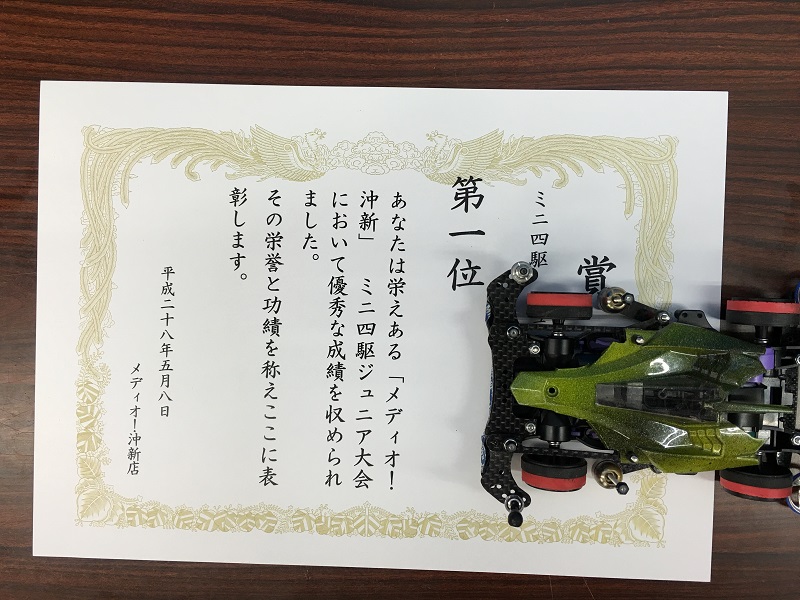 賞
ミニ四駆
第一位
あなたは栄えある「メディオ!
沖新」 ミニ四駆ジュニア大会
において優秀な成績を収められ
ました。
その栄誉と功績を称えここに表
彰します。
平成二十八年五月八日
メディオ!沖新店